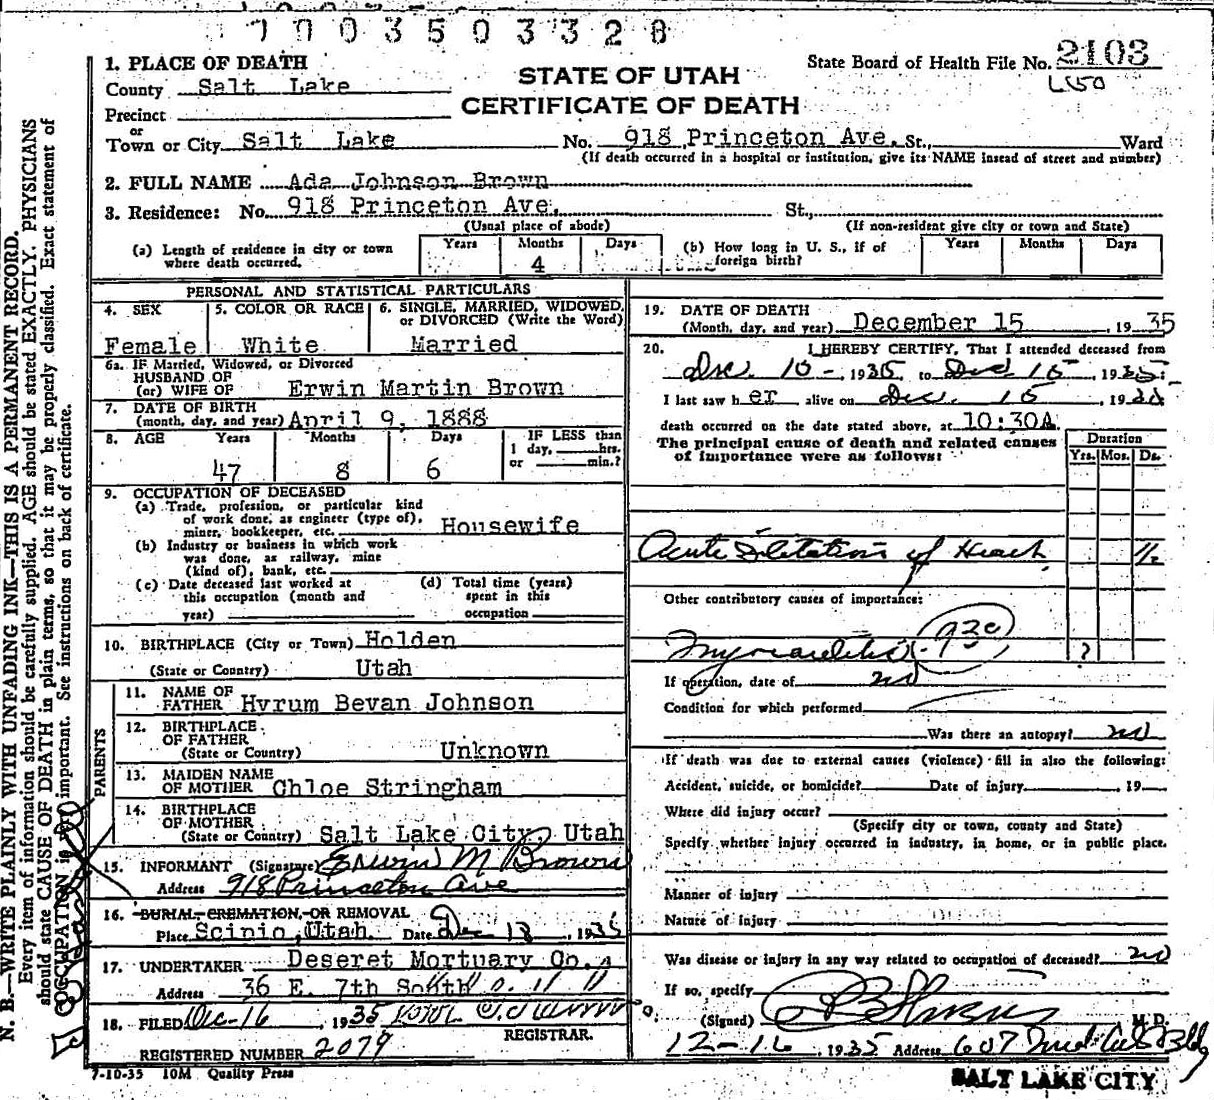 7 0 0 3 5 0 3 3 2 8
1. PLACE OF DEATH
County Salt Lake
STATE OF UTAH
CERTIFICATE OF DEATH
State Board of Health File No. 2103
Precinct
or
Town or City Salt Lake No. 918 Princeton Ave. St., Ward
(If death occurred in a hospital or institution, give its NAME insead of street and number)
2. FULL NAME Ada Johnson Brown
3. Residence: No. 918 Princeton Ave. St.,
(Usual place of abode) (If non-resident give city or town and State)
(a) Length of residence in city or town where death occurred. Years Months 4 Days
(b) How long in U. S., if of foreign birth? Years Months Days
PERSONAL AND STATISTICAL PARTICULARS
4. SEX Female
5. COLOR OR RACE White
6. SINGLE, MARRIED, WIDOWED, or DIVORCED (Write the Word) Married
6a. IF Married, Widowed, or Divorced
HUSBAND OF
(or) WIFE OF Erwin Martin Brown
7. DATE OF BIRTH
(month, day, and year) April 9, 1888
8. AGE Years Months Days IF LESS than
1 day, hrs.
or min.?
47 8 6
9. OCCUPATION OF DECEASED
(a) Trade, profession, or particular kind
of work done, as engineer (type of),
miner, bookkeeper, etc. Housewife
(b) Industry or business in which work
was done, as railway, mine
(kind of), bank, etc.
(c) Date deceased last worked at
this occupation (month and
year)
(d) Total time (years)
spent in this
occupation
10. BIRTHPLACE (City or Town) Holden
(State or Country) Utah
PARENTS
11. NAME OF
FATHER Hyrum Bevan Johnson
12. BIRTHPLACE
OF FATHER
(State or Country) Unknown
13. MAIDEN NAME
OF MOTHER Chloe Stringham
14. BIRTHPLACE
OF MOTHER
(State or Country) Salt Lake City, Utah
15. INFORMANT (Signature) Erwin M Brown
Address 918 Princeton Ave
16. BURIAL, CREMATION, OR REMOVAL
Place Scipio, Utah. Date Dec 18, 1935
17. UNDERTAKER Deseret Mortuary Co.
Address 36 E. 7th South
18. FILED Dec-16, 1935
REGISTRAR.
REGISTERED NUMBER 2079
7-10-35 10M Quality Press
19. DATE OF DEATH
(Month, day, and year) December 15, 1935
20. I HEREBY CERTIFY, That I attended deceased from
Dec. 10-, 1935, to Dec 15, 1935;
I last saw her alive on Dec. 15, 1935
death occurred on the date stated above, at 10:30A
The principal cause of death and related causes
of importance were as follows:
Duration
Yrs. Mos. Ds.
Acute Dilitation of Heart ½
Other contributory causes of importance:
Myocarditis 93c ?
If operation, date of no
Condition for which performed
Was there an autopsy? no
If death was due to external causes (violence) fill in also the following:
Accident, suicide, or homicide? Date of injury 19
Where did injury occur?
(Specify city or town, county and State)
Specify whether injury occurred in industry, in home, or in public place.
Manner of injury
Nature of injury
Was disease or injury in any way related to occupation of deceased? no
If so, specify
(Signed) M. D.
12-16, 1935 Address 607 Med Arts Bldg
SALT LAKE CITY
N. B.—WRITE PLAINLY WITH UNFADING INK—THIS IS A PERMANENT RECORD.
Every item of information should be carefully supplied. AGE should be stated EXACTLY. PHYSICIANS
should state CAUSE OF DEATH in plain terms, so that it may be properly classified. Exact statement of
OCCUPATION is important. See instructions on back of certificate.